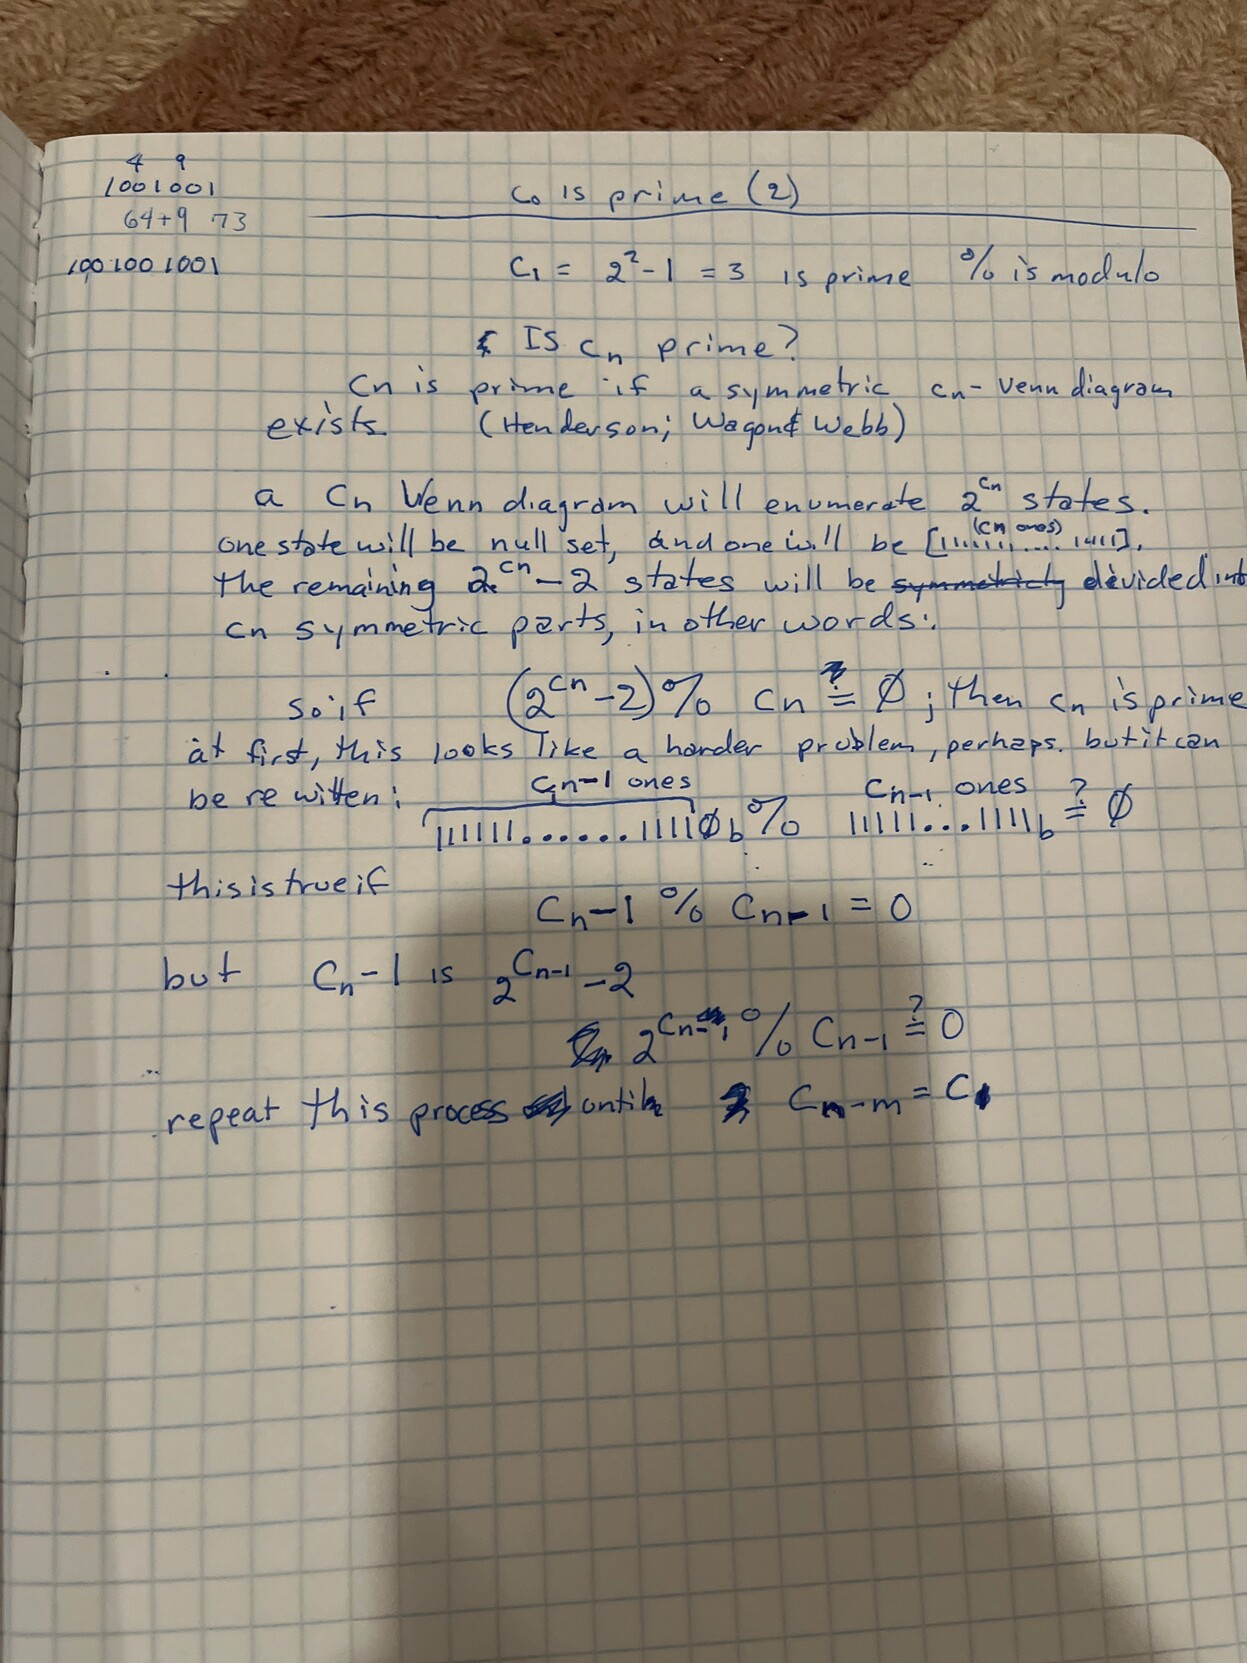 4 9
1001001
64+9 73
100100 1001
C₀ is prime (2)
C₁ = 2²-1 = 3 is prime % is modulo
Is Cₙ prime?
Cn is prime if a symmetric cₙ- Venn diagram
exists (Henderson; Wagon & Webb)
a Cn Venn diagram will enumerate 2^Cn states.
(Cn ones)
one state will be null set, and one will be [1111111.....1111].
The remaining 2^Cn - 2 states will be devided into
cn symmetric parts, in other words:
so if (2^Cn - 2) % Cn ≟ Ø ; then Cn is prime
at first, this looks like a harder problem, perhaps. but it can
Cn-1 ones Cn-1 ones
be re witten: 111111......1111Øb % 11111...1111b ≟ Ø
this is true if
Cₙ-1 % Cₙ₋₁ = 0
but Cₙ-1 is 2^Cn-1 - 2
2^Cn-1 % Cₙ₋₁ ≟ 0
repeat this process until Cₙ₋ₘ = C₁